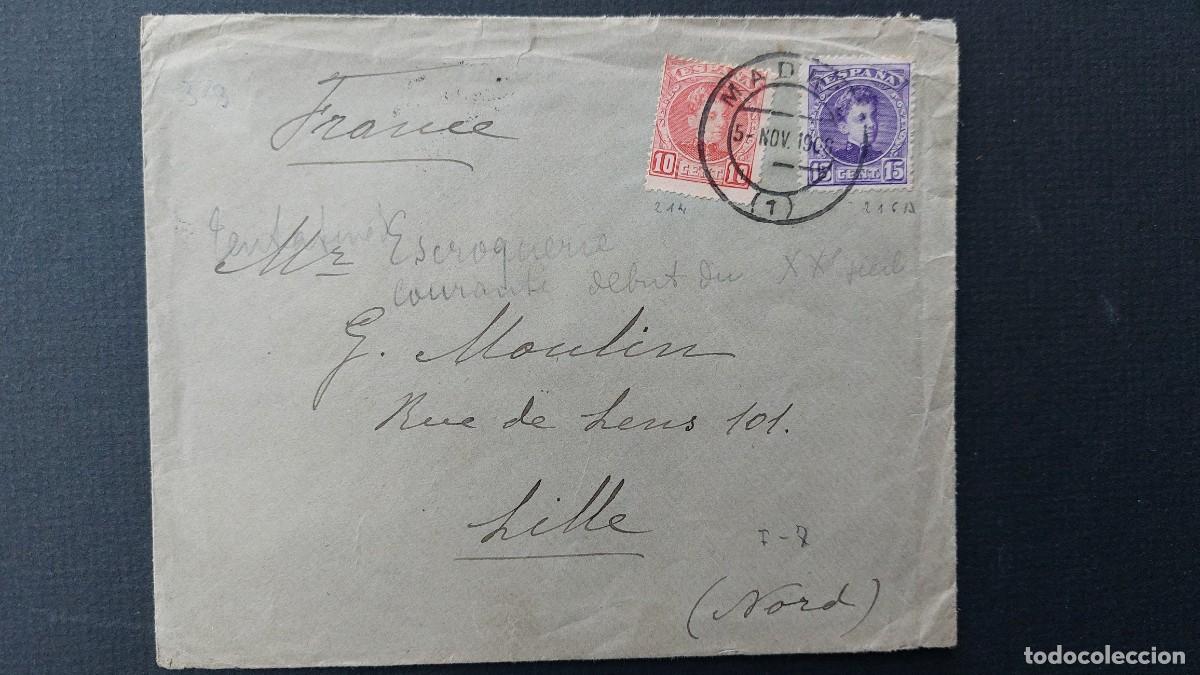 France
ESPAÑA
10 CENT. 10
MAD
5- NOV. 190
(1)
ESPAÑA
15 CENT. 15
214
Escroquerie
courante début du XX
Mr
G. Moulin
Rue de Lens 101.
Lille
(Nord)
todocoleccion